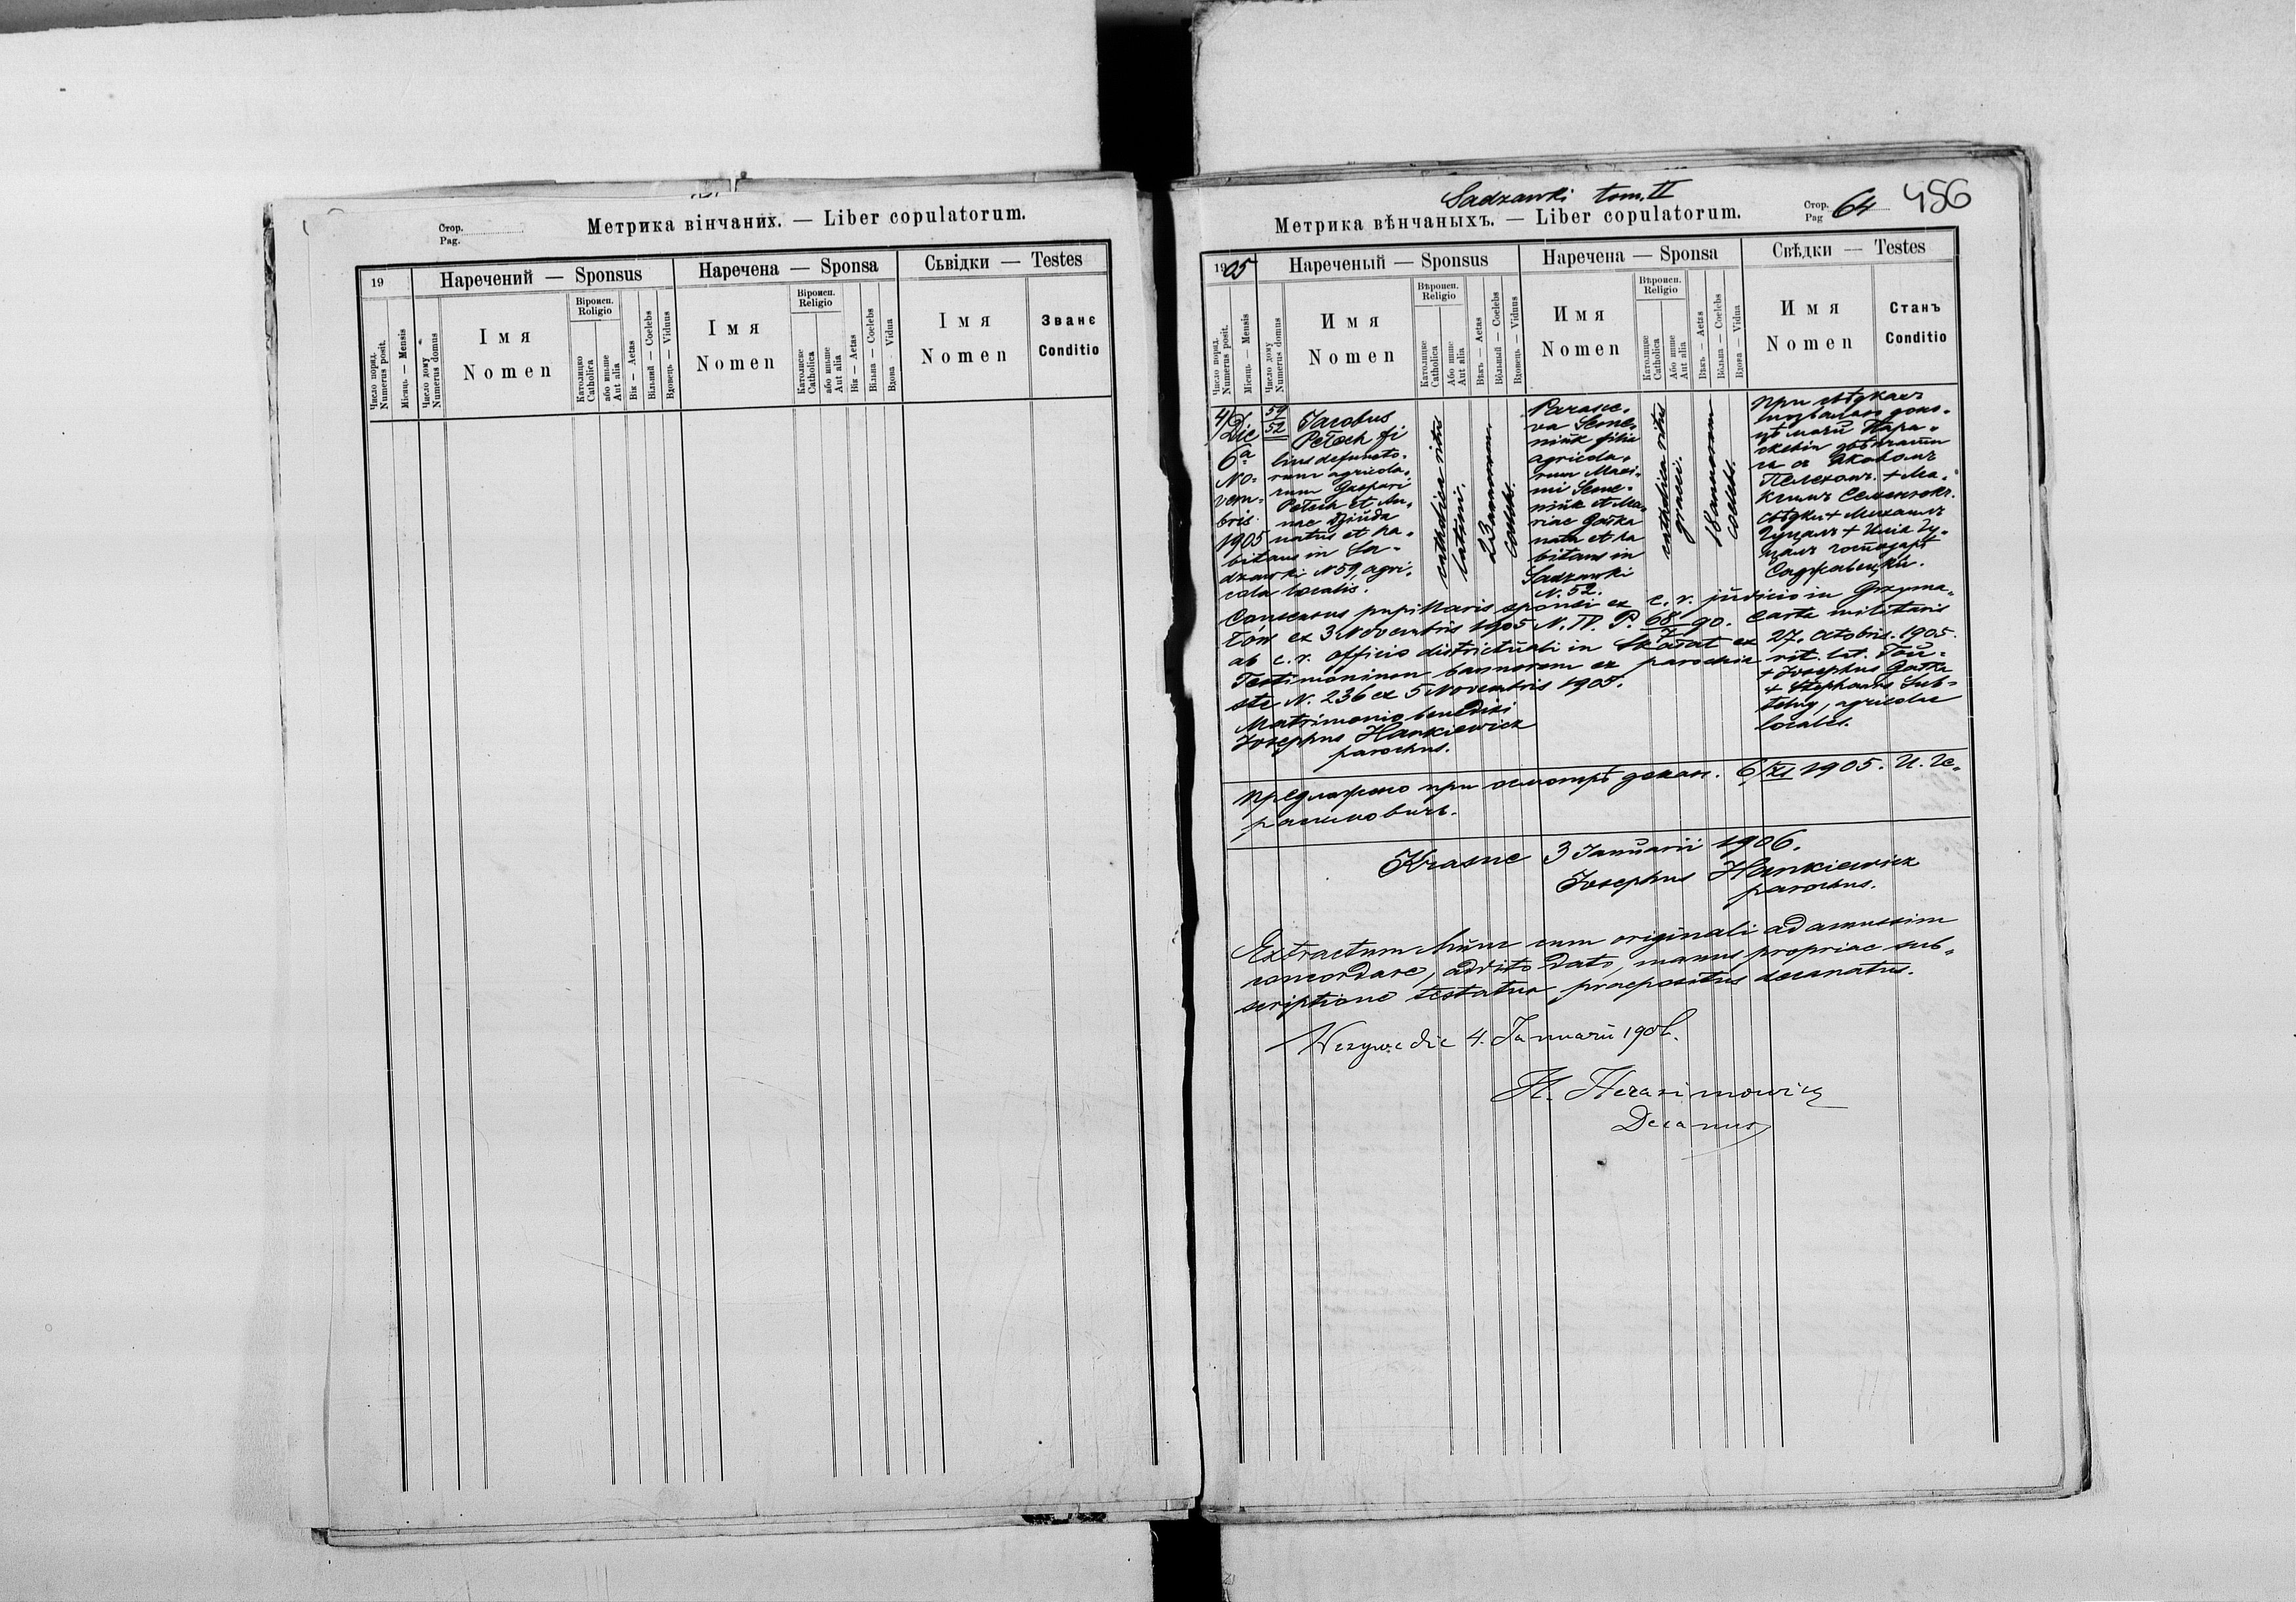 Стор.
Pag.
Метрика вінчаних. — Liber copulatorum.
19
Наречений — Sponsus
Наречена — Sponsa
Сьвідки — Testes
Число поряд.
Numerus posit.
Місяць — Mensis
Число дому
Numerus domus
Імя
Nomen
Віроисп.
Roligio
Католицко
Catholica
або иньше
Aut alia
Вік — Aetas
Вільний — Coelebs
Вдовець — Viduus
Імя
Nomen
Віроисп.
Religio
Католиске
Catholica
або иньше
Aut alia
Вік — Aetas
Вільна — Coelebs
Вдова - Vidua
Імя
Nomen
Званє
Conditio
Sadzawki tom. II
Стор.
Pag 64 456
Метрика вѣнчаныхъ. — Liber copulatorum.
1905
Нареченый — Sponsus
Наречена — Sponsa
Свѣдки — Testes
Число поряд.
Numerus posit.
Місяць — Mensis
Число дому
Numerus domus
Имя
Nomen
Вѣроисп.
Religio
Католицке
Catholica
Або инше
Aut alia
Вѣкъ — Aetas
Вôльный — Coelebs
Вдовець — Viduus
Имя
Nomen
Вѣроисп.
Religio
Католицке
Catholica
Або инше
Aut alia
Вѣкъ — Aetas
Вôльна — Coelebs
Вдова — Vidua
Имя
Nomen
Станъ
Conditio
4/
Die
6ª
No-
vem-
bris
1905
59
52
Jacobus
Pełech fi
lius defuncto-
rum agricola-
rum Gaspari
Pełech et An-
nae
natus et ha-
bitans in Sa-
dzawki N 59, agri-
cola localis.
catholica ritus
latini.
23 annorum
coelebs.
Parasce-
va Seme-
niuk filia
agricola-
rum Maxi-
mi Seme-
niuk et Ma-
riae Gałka
nata et ha
bitans in
Sadzawki
N. 52.
catholica ritus
graeci.
18 annorum
coelebs.
при свѣдкахъ
моѣй Пара-
скевіи вѣнчати
ся съ Яковомъ
Пелехомъ. + Ма-
ксимъ Семенюкъ.
свѣдки + Михаилъ
Гуцалъ + Илія Гу-
цалъ господарѣ
Саджавецки.
Consensus pupillaris sponsi ex c. r. judicio in Grzyma-
łów ex 3 Novembris 1905 N. IV. P. 68/7 90. Carta militaris
ab c. r. officio districtuali in Skałat ex 27. Octobris. 1905.
Testimonium bannorum ex parochia rit. lat. Tou-
ste N. 236 ex 5 Novembris 1905.
+ Josephus Gałka
+ Stephanus Sub-
telny, agricolae
locales.
Matrimonio benedixi
Josephus Hankiewicz
parochus.
Предложено при осмотрѣ декан. 6/XI 1905. И. Ге-
расимовичъ.
Krasne 3 Januarii 1906.
Josephus Hankiewicz
parochus.
Extractum hunc cum originali ad amussim
concordare, addito dato, manus propriae sub-
scriptione testatur praepositus decanatus.
die 4. Januarii 1906.
H. Herasimowicz
Decanus